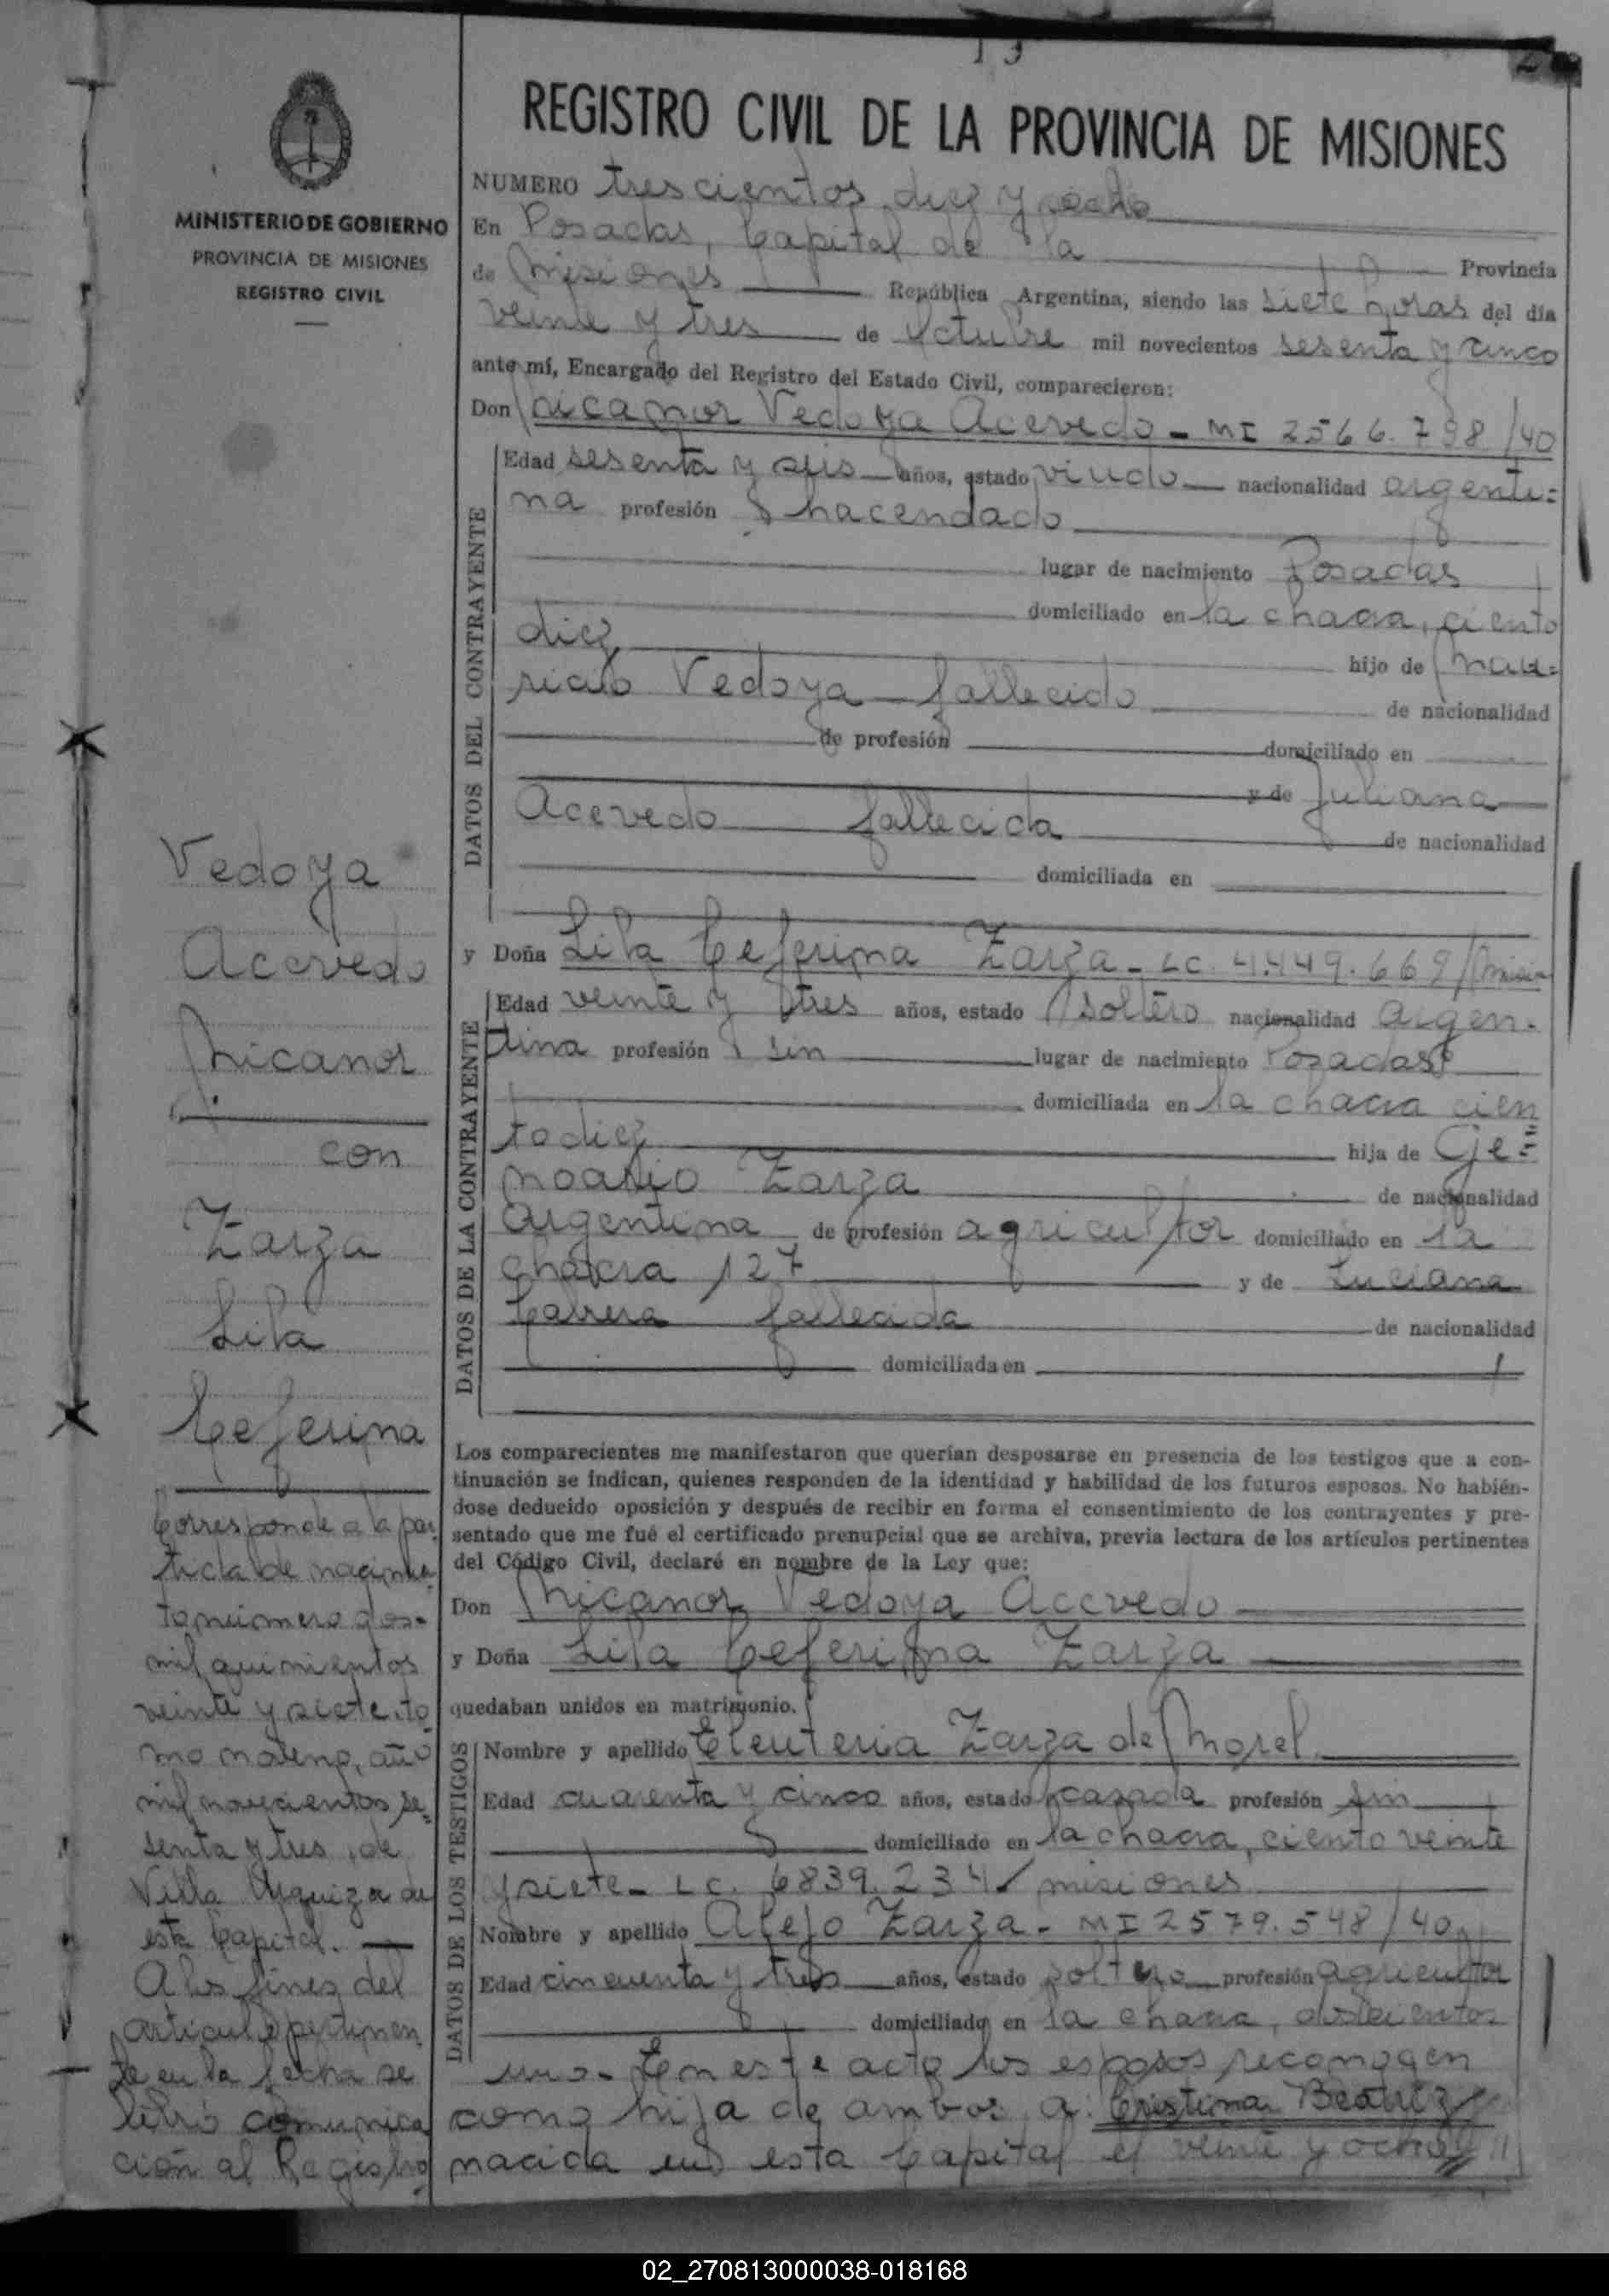 13
2
MINISTERIO DE GOBIERNO
PROVINCIA DE MISIONES
REGISTRO CIVIL
REGISTRO CIVIL DE LA PROVINCIA DE MISIONES
NUMERO trescientos diez y ocho
En Posadas, Capital de la Provincia
de Misiones República Argentina, siendo las siete horas del día
veinte y tres de Octubre mil novecientos sesenta y cinco
ante mí, Encargado del Registro del Estado Civil, comparecieron:
Don Nicanor Vedoya Acevedo - MI 2566.798/40
DATOS DEL CONTRAYENTE
Edad sesenta y seis años, estado viudo nacionalidad argenti=
na profesión hacendado
lugar de nacimiento Posadas
domiciliado en la chacra, ciento
diez hijo de Mau=
ricio Vedoya fallecido de nacionalidad
de profesión domiciliado en
y de Juliana
Acevedo fallecida de nacionalidad
domiciliada en
y Doña Lila Ceferina Zarza - LC. 4.449.669/
DATOS DE LA CONTRAYENTE
Edad veinte y tres años, estado soltero nacionalidad argen-
tina profesión sin lugar de nacimiento Posadas
domiciliada en la chacra cien
to diez hija de Ge=
noario Zarza de nacionalidad
argentina de profesión agricultor domiciliado en la
chacra 127 y de Luciana
Cabrera fallecida de nacionalidad
domiciliada en
Los comparecientes me manifestaron que querían desposarse en presencia de los testigos que a con-
tinuación se indican, quienes responden de la identidad y habilidad de los futuros esposos. No habién-
dose deducido oposición y después de recibir en forma el consentimiento de los contrayentes y pre-
sentado que me fué el certificado prenupcial que se archiva, previa lectura de los artículos pertinentes
del Código Civil, declaré en nombre de la Ley que:
Don Nicanor Vedoya Acevedo
y Doña Lila Ceferina Zarza
quedaban unidos en matrimonio.
DATOS DE LOS TESTIGOS
Nombre y apellido Eleuteria Zarza de Morel
Edad cuarenta y cinco años, estado casada profesión sin
domiciliado en la chacra, ciento veinte
y siete - LC. 6839.234/ misiones
Nombre y apellido Alejo Zarza - MI 2579.548/40
Edad cincuenta y tres años, estado soltero profesión agricultor
domiciliado en la chacra, doscientos
uno - En este acto los esposos reconocen
como hija de ambos a: Cristina Beatriz
nacida en esta Capital el veinte y ocho
Vedoya
Acevedo
Nicanor
con
Zarza
Lila
Ceferina
Corresponde a la par
tida de nacimien
to número dos-
mil quinientos
veinte y siete, to
mo noveno, año
mil novecientos se=
senta y tres, de
Villa Urquiza de
esta Capital.
A los fines del
artículo pertinen
te en la fecha se
libró comunica
ción al Registro
02_270813000038-018168